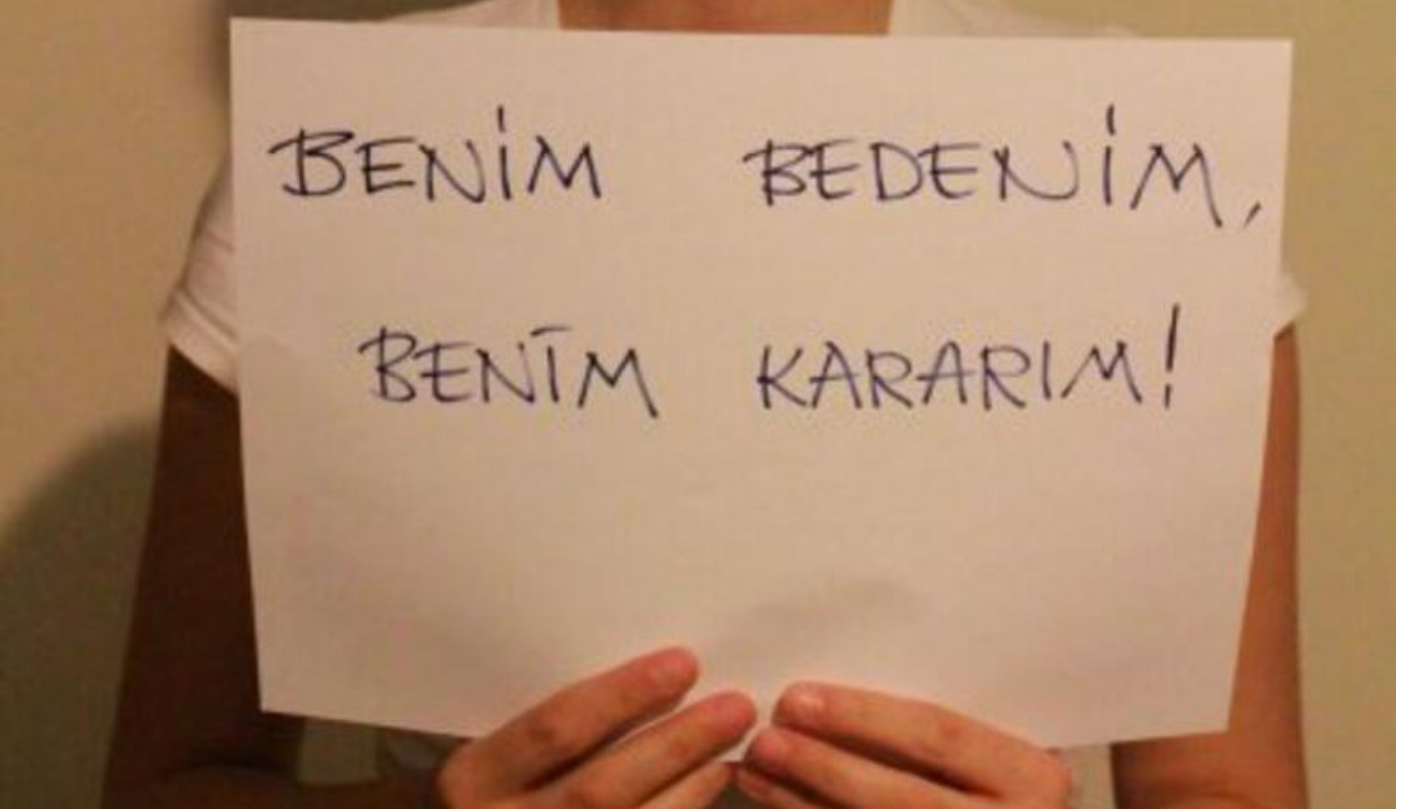 BENİM BEDENİM,
BENİM KARARIM!